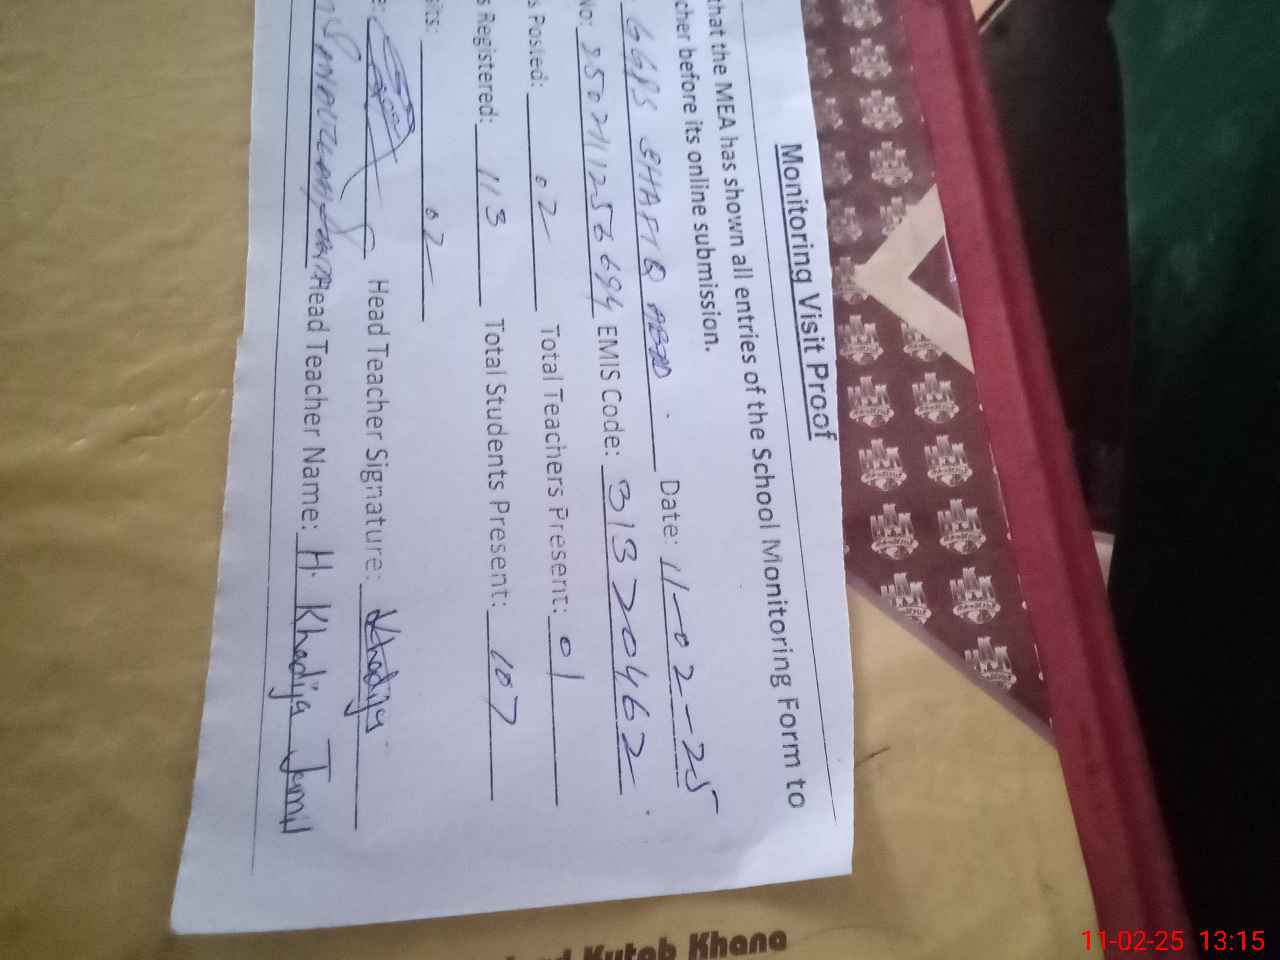 Monitoring Visit Proof
that the MEA has shown all entries of the School Monitoring Form to
cher before its online submission.
GGPS SHAFIQ ABAD . Date: 11-02-25
No: 35071125 6694 EMIS Code: 31320462
s Posted: 02 Total Teachers Present: 01
s Registered: 113 Total Students Present: 107
its: 02
e: Head Teacher Signature: Khadija
Head Teacher Name: H. Khadija Jamil
Kutab Khana
11-02-25 13:15